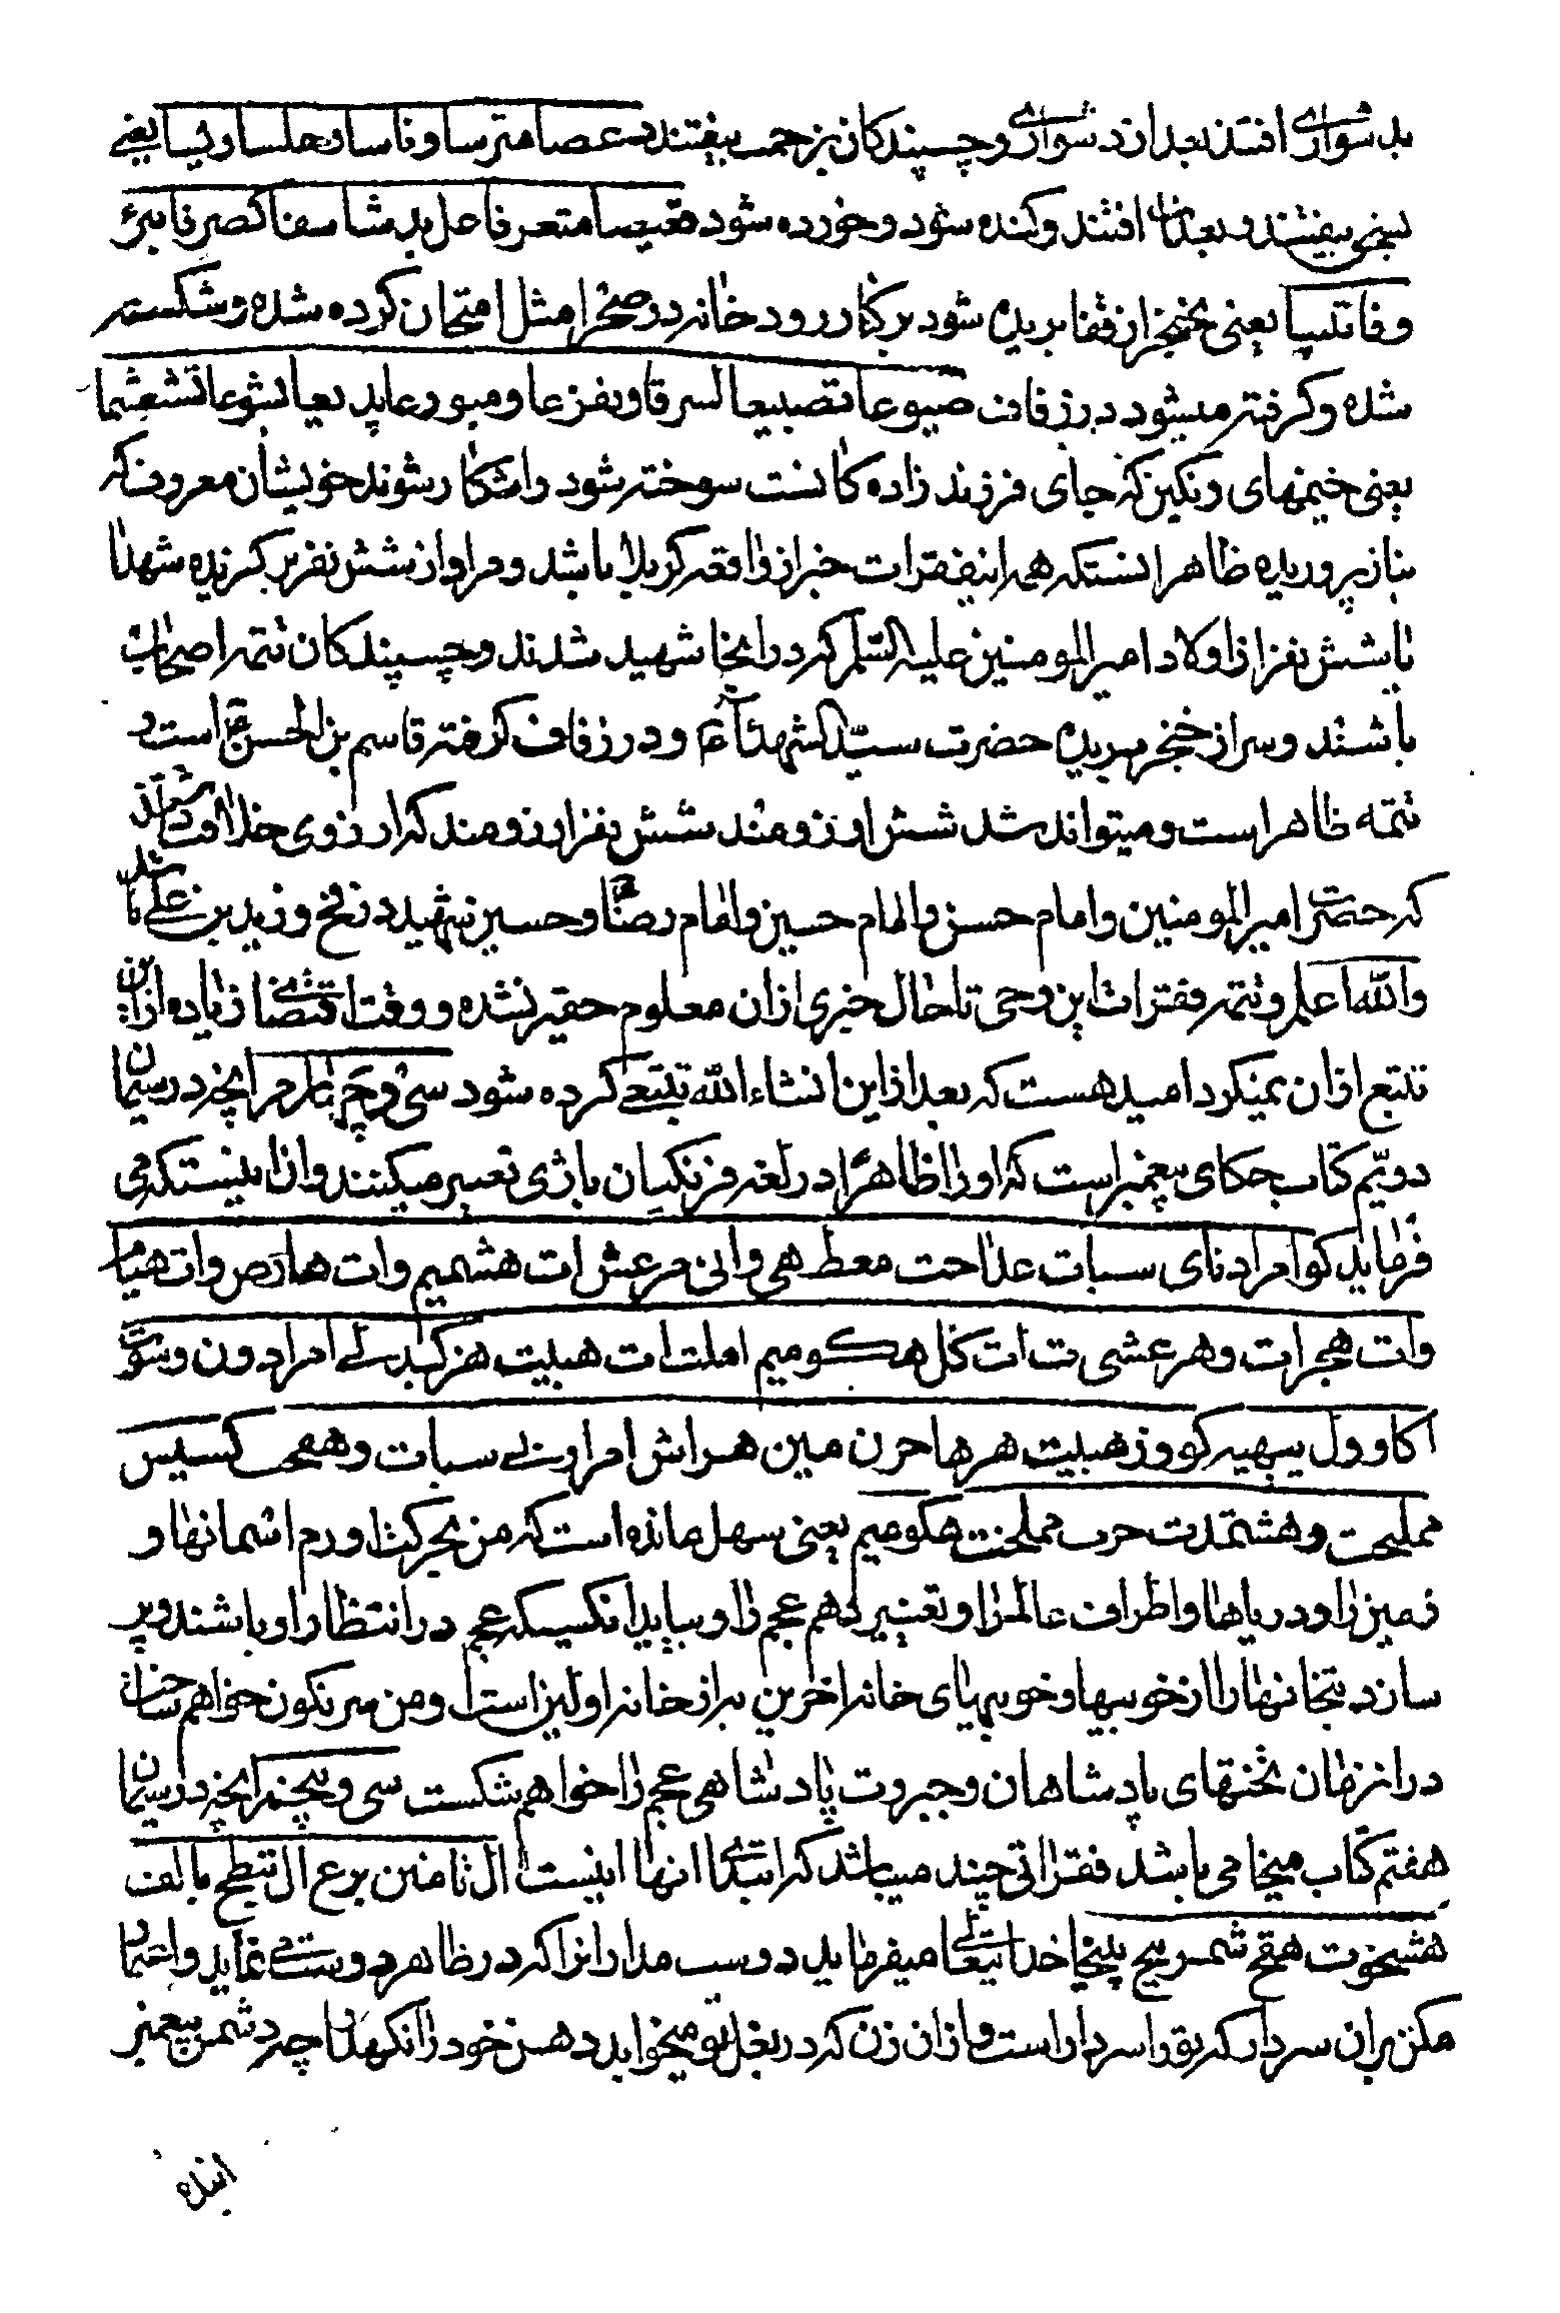 بدشواری افتند بعد از دشواری و چسپندکان بزحمت بیفتند دعصا مترسا و ناسا و حلسا و یسا یعنی
بسختی بیفتند و بعد افتند و کنده شود و خورده شود
وفاتلیسا یعنی بخنجر از قفا بریده شود بر کنار رود خانه در صحرا مثل امتحان کرده شده و شکسته
شده و کرفته میشود در زفاف صبوعا تصبیعا السرقا ویفزعا ومیورعا
یعنی خیمهای رنکین که جای فرزند زاده کانست سوخته شود واشکار شوند خویشان معروف که
بناز پروریده ظاهر انستکه همه اینفقرات خبر از واقعه کربلا باشد ومراد از شش نفر برکزیده شهدا
یا شش نفر از اولاد امیر المومنین علیه السلم که در انجا شهید شدند و چسپندکان تتمه اصحاب
باشند و سر از خنجر بریده حضرت سید الشهدا ع و در زفاف کرفته قاسم بن الحسن ع است و
تتمه ظاهر است و میتواند شد شش ارزومند شش نفر ارزومند که ارزوی خلافت داشتند
که حضرت امیر المومنین و امام حسن و امام حسین و امام رضا و حسین شهید در فخ و زید بن علی باشد
والله اعلم و تتمه فقرات این وحی تا حال خبری ازان معلوم حقیر نشده و وقت اقتضای زیاده از این
تتبع ازان نمیکرد امید هست که بعد از این انشاء الله تتبعی کرده شود سی و چهارم انچه در سیمان
دویم کتاب حکای پیغمبر است که او را ظاهرا در لغه فرنکیان باژی تعبیر میکنند وان اینستکه می
فرماید کو امرادنای سبات عداحت معط هی وانی مرعش ات هشمیم وات هارص وات هیام
وات هجرات وهرعشی ت ات کل هکومیم املت ات هبیت هزکبد لی امرادون و
اکاوول یبهیه کووز هبیت هزها حرن مین هراش امراونی سبات و هفحت کسیس
مملیحت وهشمدت حرب مملخت هکومیم یعنی سهل مانده است که من بحرکت اورم اسمانها و
زمین را و دریاها و اطراف عالم را و تغییر دهم عجم را و بیاید انکسیکه عجم در انتظار او باشند و پر
سازد بتخانها را از خوبیها و خوبیهای خانه اخرین به از خانه اولین است و من سرنکون خواهم ساخت
در ان زمان تختهای پادشاهان و جبروت پادشاهی عجم را خواهم شکست سی و پنجم انچه در سیمان
هفتم کتاب میخا می باشد فقراتی چند میباشد که ابتدای انها اینست ال تامنین برع ال تبطح بالف
هشخوت همقح شمر پیخا خدایتعالی میفرماید دوست مدار انرا که در ظاهر دوستی نماید و اعتماد
مکن بران سردار که تو را سردار است و ازان زن که در بغل تو میخوابد دهن خود را نکهدار چه دشمن پیغمبر